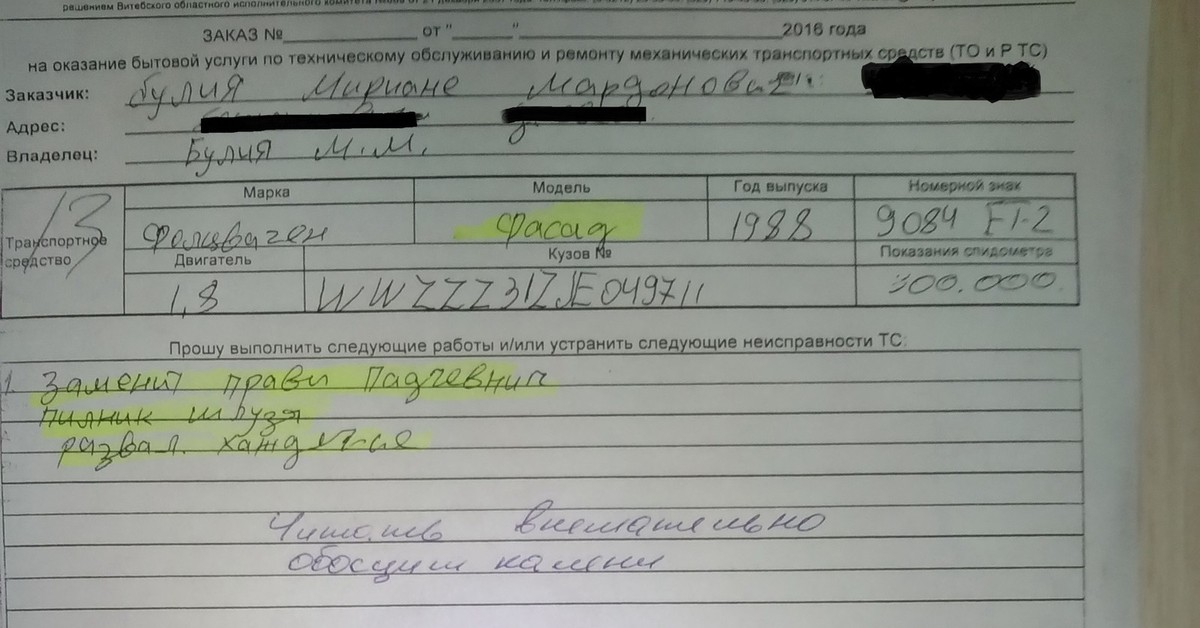 решением Витебского областного исполнительного комитета
ЗАКАЗ №____ от "____" ____ 2016 года
на оказание бытовой услуги по техническому обслуживанию и ремонту механических транспортных средств (ТО и Р ТС)
Заказчик: Булия Мириане Мардонович
Адрес:
Владелец: Булия М.М.
13
Марка Модель Год выпуска Номерной знак
Транспортное средство Фолцваген Фасад 1988 9084 ЕТ-2
Двигатель Кузов № Показания спидометра
1,8 WWZZZ31ZJE049711 300.000
Прошу выполнить следующие работы и/или устранить следующие неисправности ТС:
1. Заменит прави Падчевник
пилник шруза
развал. хаждение
Читать внемательно
обосцит камени